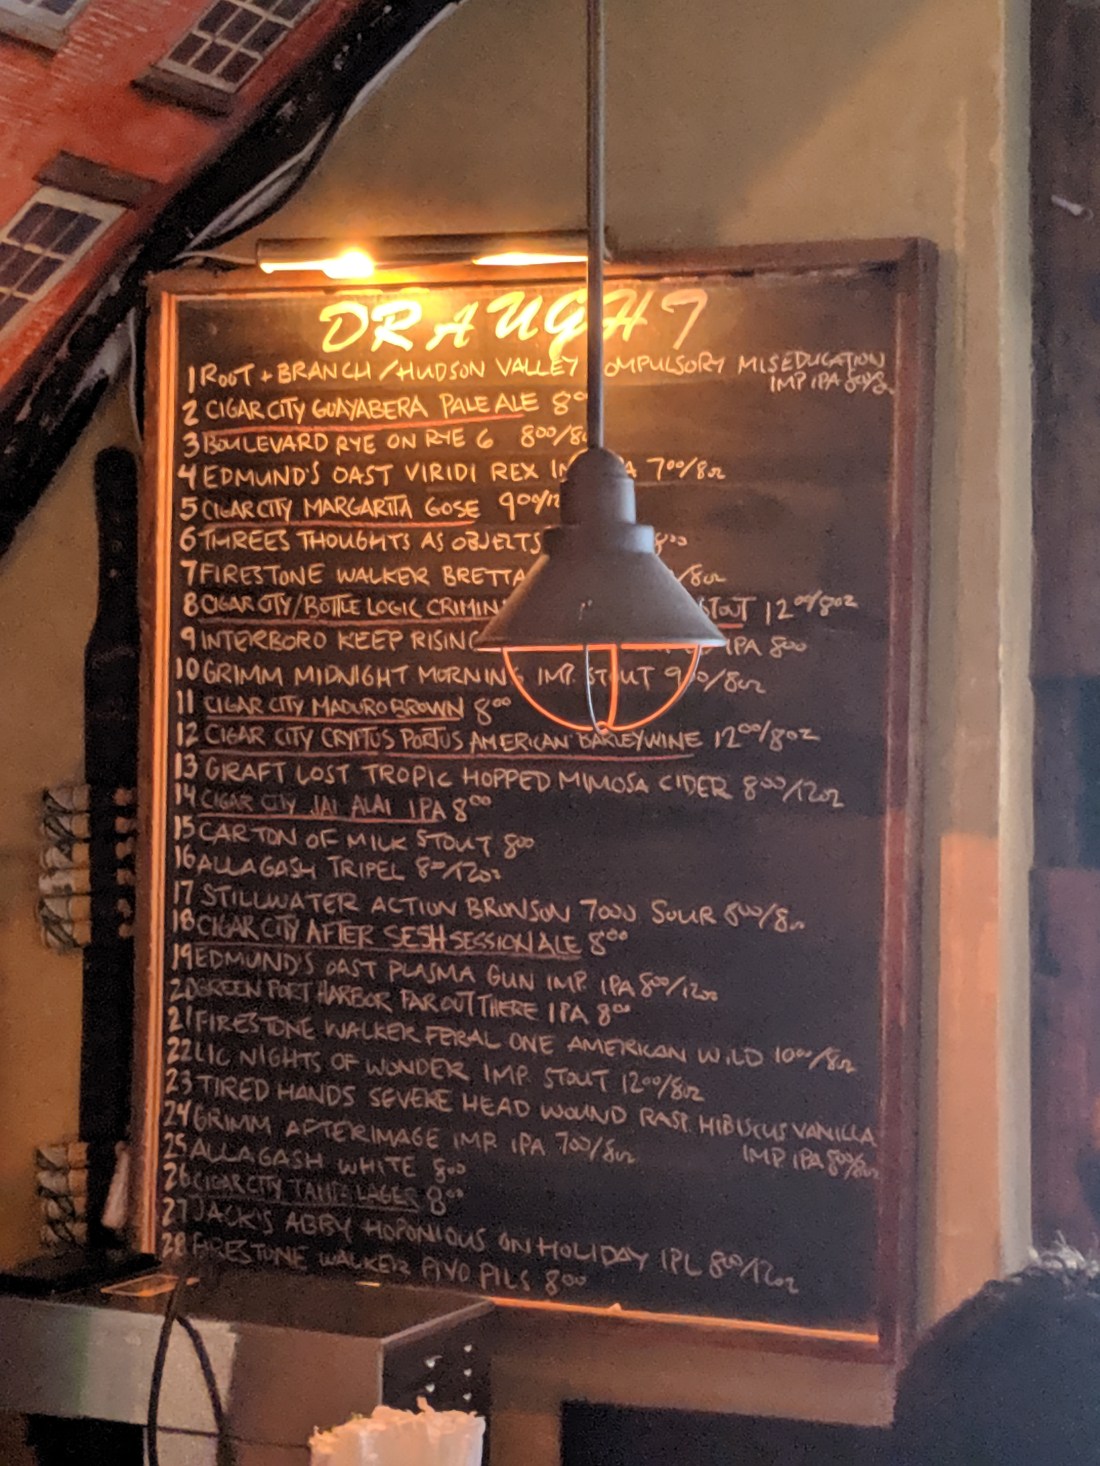 DRAUGHT
1 ROOT + BRANCH / HUDSON VALLEY COMPULSORY MISEDUCATION
IMP IPA 800/8oz
2 CIGAR CITY GUAYABERA PALE ALE
3 BOULEVARD RYE ON RYE 6 800/8
4 EDMUND'S OAST VIRIDI REX 700/8oz
5 CIGAR CITY MARGARITA GOSE 900/12
6 THREES THOUGHTS AS OBJECTS
7 FIRESTONE WALKER BRETTA /8oz
8 CIGAR CITY/BOTTLE LOGIC CRIMIN STOUT 1200/8oz
9 INTERBORO KEEP RISING IPA 800
10 GRIMM MIDNIGHT MORNING IMP. STOUT 900/8oz
11 CIGAR CITY MADURO BROWN 800
12 CIGAR CITY CRYPTUS PORTUS AMERICAN BARLEYWINE 1200/8oz
13 GRAFT LOST TROPIC HOPPED MIMOSA CIDER 800/12oz
14 CIGAR CITY JAI ALAI IPA 800
15 CARTON OF MILK STOUT 800
16 ALLAGASH TRIPEL 800/12oz
17 STILLWATER ACTION BRONSON 7000 SOUR 800/8oz
18 CIGAR CITY AFTER SESH SESSION ALE 800
19 EDMUND'S OAST PLASMA GUN IMP. IPA 800/12oz
20 GREENPORT HARBOR FAR OUT THERE IPA 800
21 FIRESTONE WALKER FERAL ONE AMERICAN WILD 1000/8oz
22 LIC NIGHTS OF WONDER IMP. STOUT 1200/8oz
23 TIRED HANDS SEVERE HEAD WOUND RASP. HIBISCUS VANILLA
IMP IPA 800/8oz
24 GRIMM AFTERIMAGE IMP. IPA 700/8oz
25 ALLAGASH WHITE 800
26 CIGAR CITY LAGER 800
27 JACK'S ABBY HOPONIOUS ON HOLIDAY IPL 800/12oz
28 FIRESTONE WALKER PIVO PILS 800